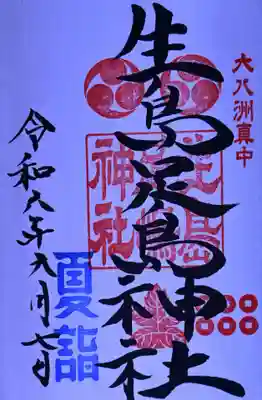 大八洲真中
生島足島神社
生島
足島
神社
夏詣
令和六年八月七日